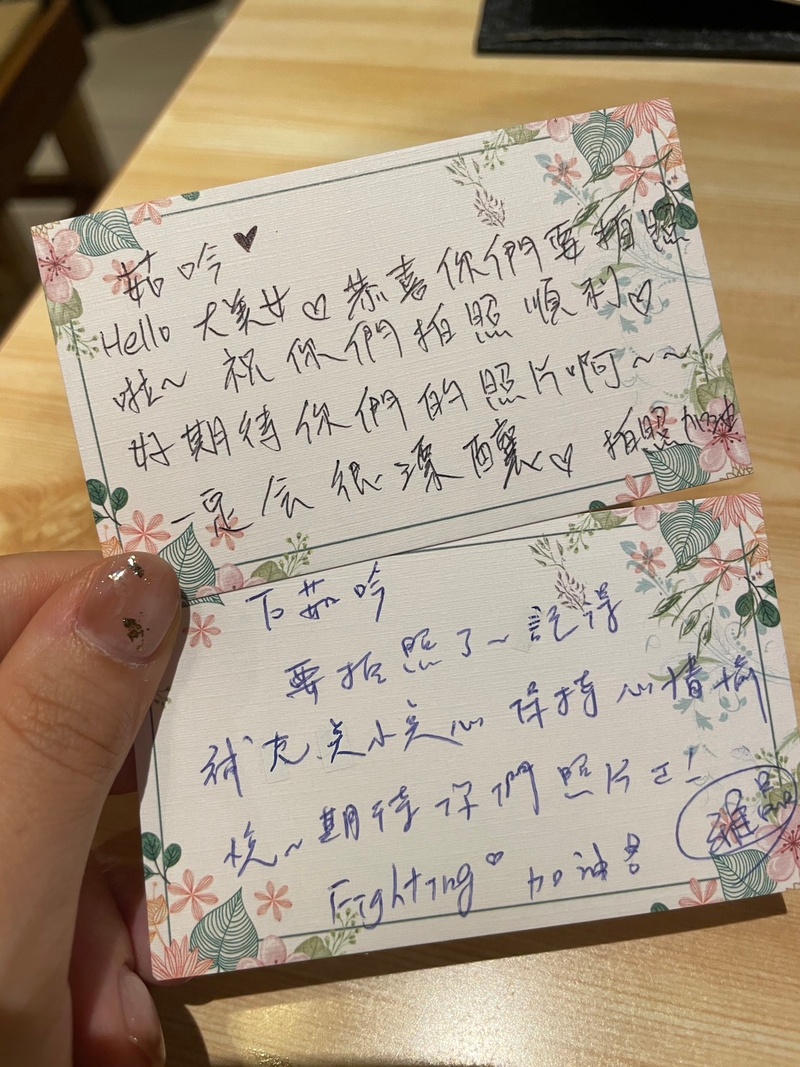 茹吟♥
Hello 大美女♡恭喜你們要拍照
啦~ 祝你們拍照順利♡
好期待你們的照片啊~~
一定会很漂釀♡ 拍照加油
茹吟
要拍照了~記得
補充点小点心 保持心情愉
悅~期待你們照片ㄛ!
Fighting♡ 加油